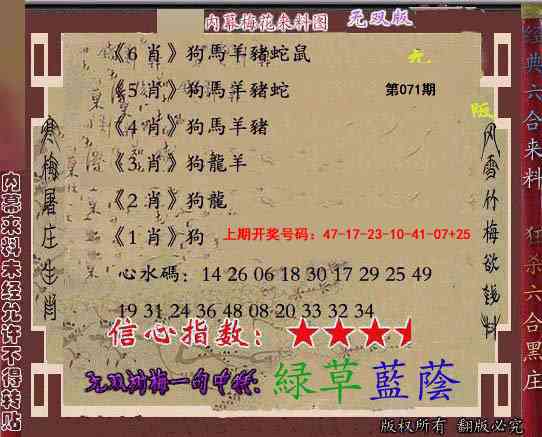 内幕梅花来料图 无双版
《6 肖》狗馬羊豬蛇鼠
无
《5 肖》狗馬羊豬蛇
第071期
版
《4 肖》狗馬羊豬
《3 肖》狗龍羊
《2 肖》狗龍
《1 肖》狗
上期开奖号码：47-17-23-10-41-07+25
心水碼：14 26 06 18 30 17 29 25 49
19 31 24 36 48 08 20 33 32 34
信心指数：
无双梅一句中特：綠草藍蔭
版权所有 翻版必究
寒梅屠庄生肖
风雪竹梅欲钱料
内幕来料未经允许不得转贴
经典六合来料 狂杀六合黑庄